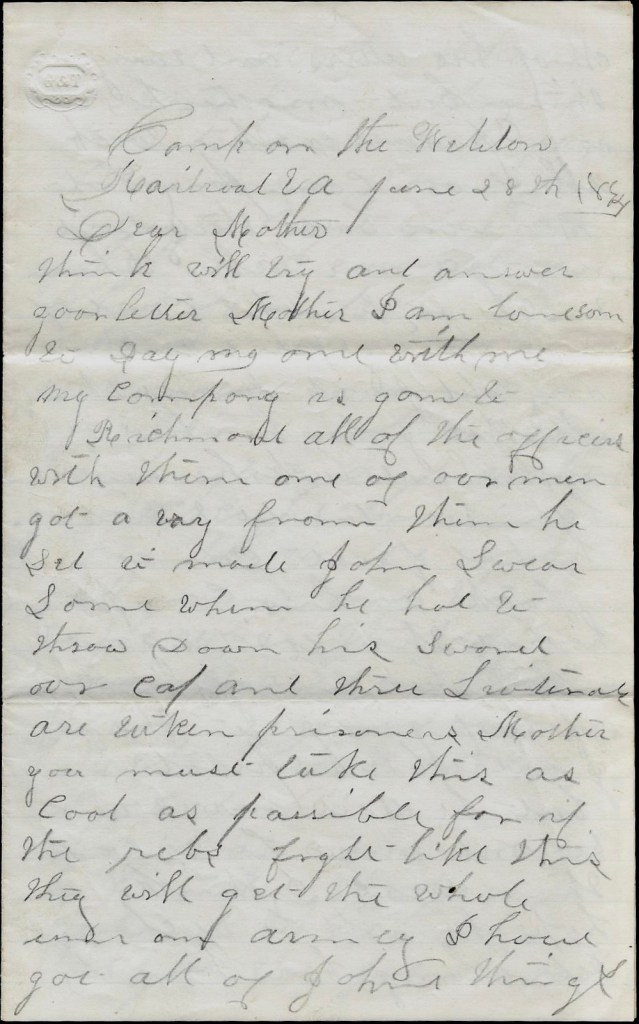 Camp on the Weldon
Railroad VA June 28th 1864
Dear Mother
think will try and answer
your letter Mother I am lonesom
to Day no one with me
my Company is gone to
Richmont all of the officers
with them one of our men
got a way from them he
sed it made John Swear
Some when he had to
throw Down his Sword
our Cap and three
are taken prisoners Mother
you must take this as
Cool as passible for if
the rebs fight like this
they will get the whole
army I have
got all of Johns things